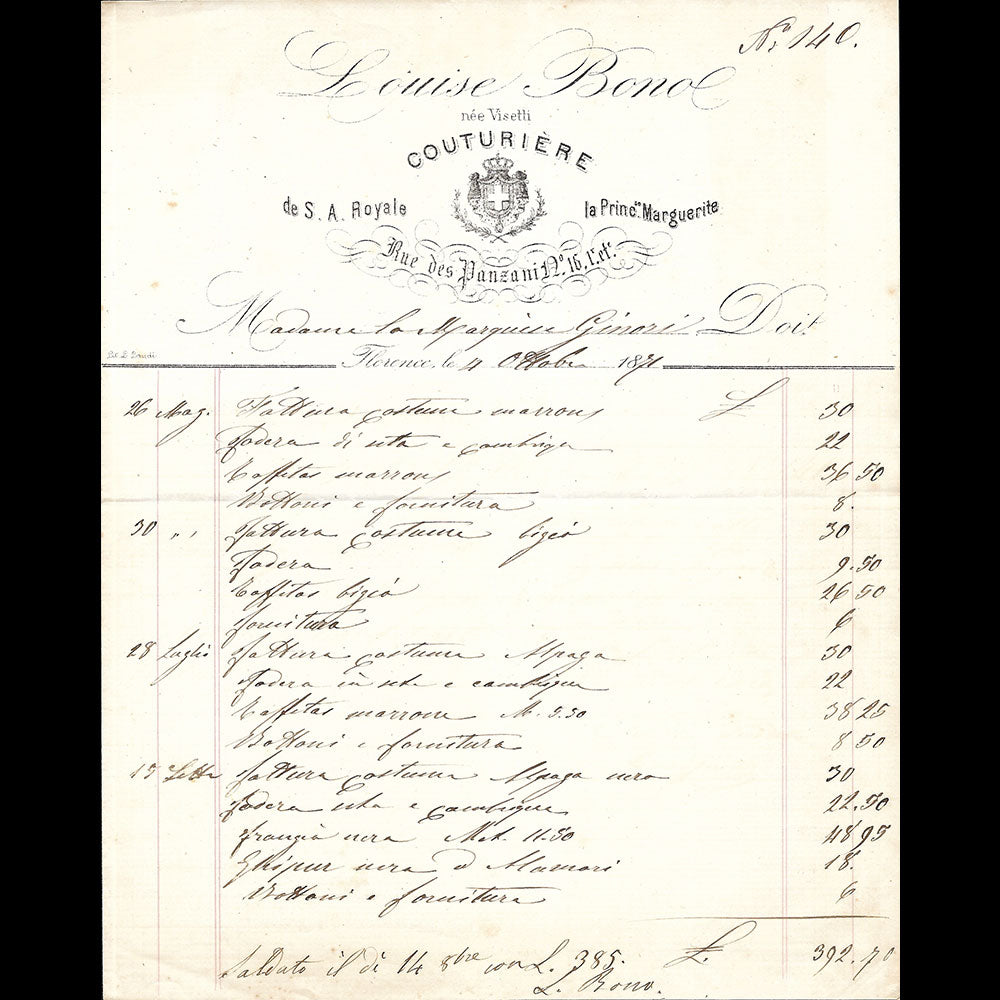 Nº 140.
Louise Bono
née Visetti
COUTURIÈRE
de S. A. Royale
la Princ.sse Marguerite
Rue des Panzani Nº 16, 1.er et.e
Madame la Marquise Ginori Doit
Florence, le 4 Ottobre 1871
26 Mag. Fattura costume marrons £ 30
Fodera di seta e cambrige 22
Taffetas marrons 36 50
Bottoni e fornitura 8.
30 " " fattura costume bigio 30
Fodera 9.50
Taffetas bigio 26 50
fornitura 6
28 Luglio fattura costume Alpaga 30
Fodera in seta e cambrigue 22
Taffetas marrone M. 5.50 38 25
Bottoni e fornitura 8 50
15 Sette fattura costume Alpaga nero 30
Fodera seta e cambrigue 22.50
frangia nera Met. 11.50 48 95
Ghipur nera 18.
Bottoni e fornitura 6
£. 392.70
Saldato il dì 14 8bre con L. 385.
L. Bono.